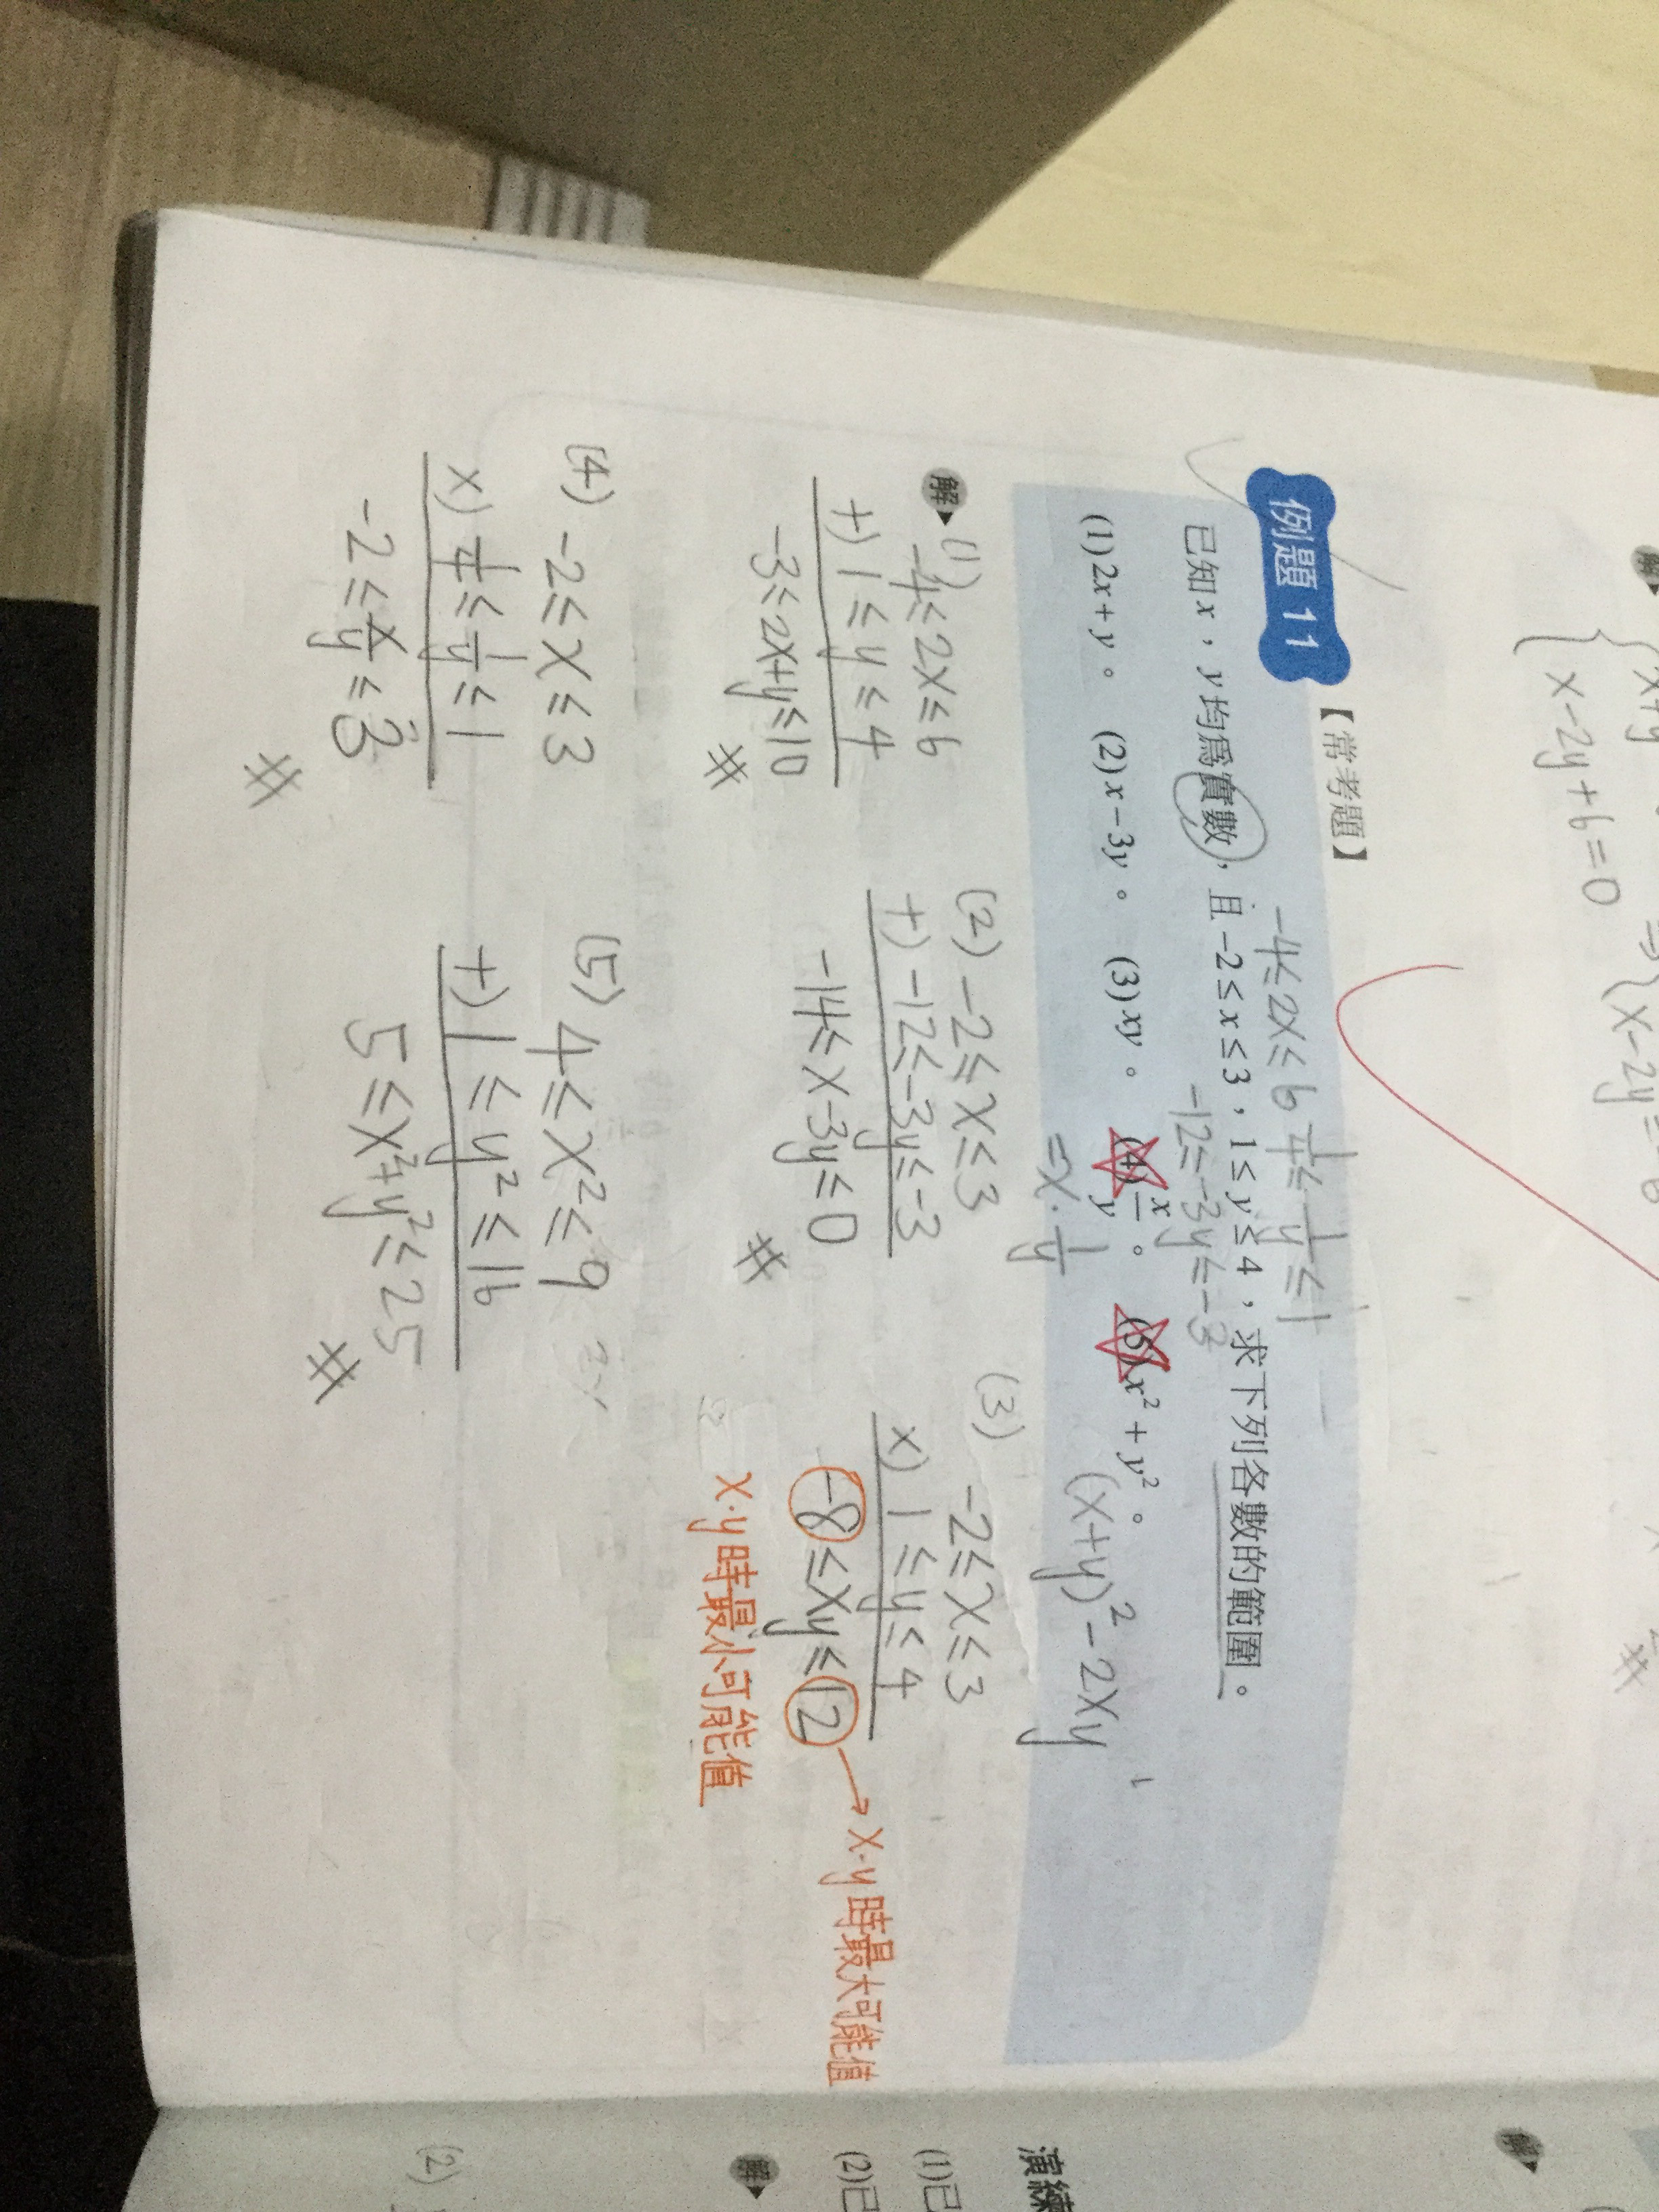 x-2y+6=0
(x-2y=-6
例題 11 【常考題】
-4≤2x≤6 1/4≤1/y≤1
已知 x，y 均為實數，且 -2≤x≤3，1≤y≤4，求下列各數的範圍。
-12≤-3y≤-3
(1) 2x+y。 (2) x-3y。 (3) xy。 (4) x/y。 (5) x²+y²。
=x·1/y (x+y)²-2xy
解 (1) -4≤2x≤6
+) 1≤y≤4
-3≤2x+y≤10
#
(2) -2≤x≤3
+) -12≤-3y≤-3
-14≤x-3y≤0
#
(3) -2≤x≤3
x) 1≤y≤4
-8≤xy≤12 → x·y時最大可能值
x·y時最小可能值
(4) -2≤x≤3
x) 1/4≤1/y≤1
-2≤x/y≤3
#
(5) 4≤x²≤9
+) 1≤y²≤16
5≤x²+y²≤25
#
演練
(1)已
(2)已
解
(2)